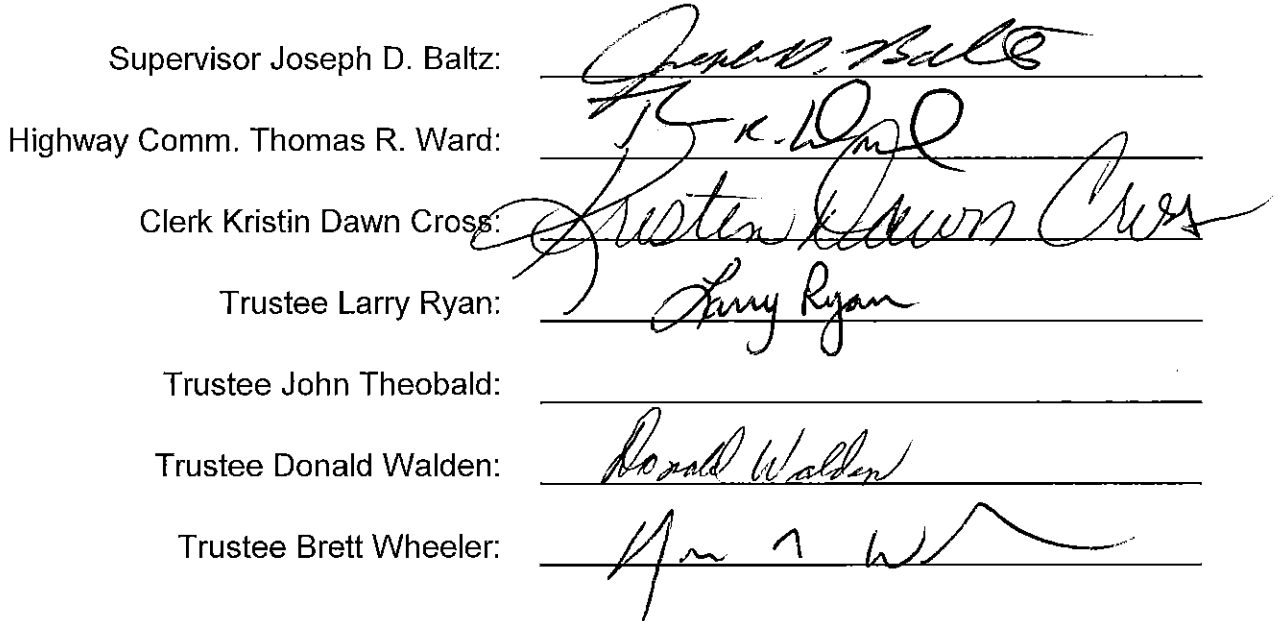 Supervisor Joseph D. Baltz: Joseph D. Baltz
Highway Comm. Thomas R. Ward: R. Ward
Clerk Kristin Dawn Cross: Kristen Dawn Cross
Trustee Larry Ryan: Larry Ryan
Trustee John Theobald:
Trustee Donald Walden: Donald Walden
Trustee Brett Wheeler: